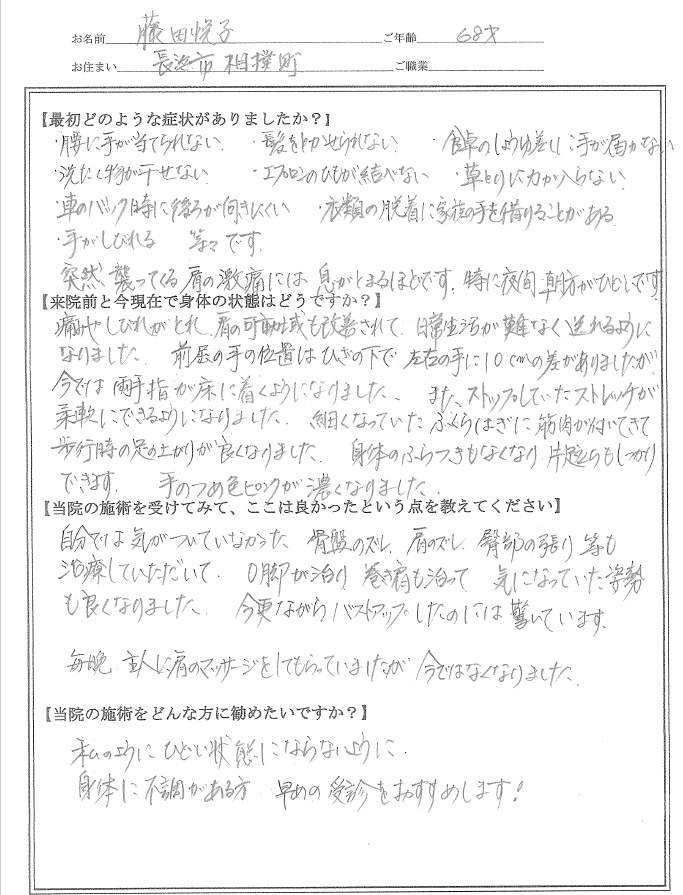 お名前 藤田悦子 ご年齢 68才
お住まい 長浜市相撲町 ご職業
【最初どのような症状がありましたか？】
・腰に手が当てられない ・髪をとかせられない ・食卓のしょうゆ差しに手が届かない
・洗たく物が干せない ・エプロンのひもが結べない ・草とりに力が入らない
・車のバック時に後ろが向きにくい ・衣類の脱着に家族の手を借りることがある
・手がしびれる 等々です。
突然襲ってくる肩の激痛には息がとまるほどです。特に夜間、朝方がひどいです
【来院前と今現在で身体の状態はどうですか？】
痛みやしびれがとれ、肩の可動域も改善されて、日常生活が難なく送れるように
なりました。 前屈の手の位置はひざの下で左右の手に10cmの差がありましたが、
今では両手指が床に着くようになりました。 また、ストップしていたストレッチが
柔軟にできるようになりました。 細くなっていたふくらはぎに筋肉が付いてきて
歩行時の足の上がりが良くなりました。 身体のふらつきもなくなり片足立ちもしっかり
できます。 手のつめ色ピンクが濃くなりました。
【当院の施術を受けてみて、ここは良かったという点を教えてください】
自分では気がついていなかった、骨盤のズレ、肩のズレ、臀部の張り等も
治療していただいて、O脚が治り、巻き肩も治って 気になっていた姿勢
も良くなりました。 今更ながらバストアップしたのには驚いています。
毎晩、主人に肩のマッサージをしてもらっていましたが今ではなくなりました。
【当院の施術をどんな方に勧めたいですか？】
私のようにひどい状態にならないように、
身体に不調がある方 早めの受診をおすすめします！